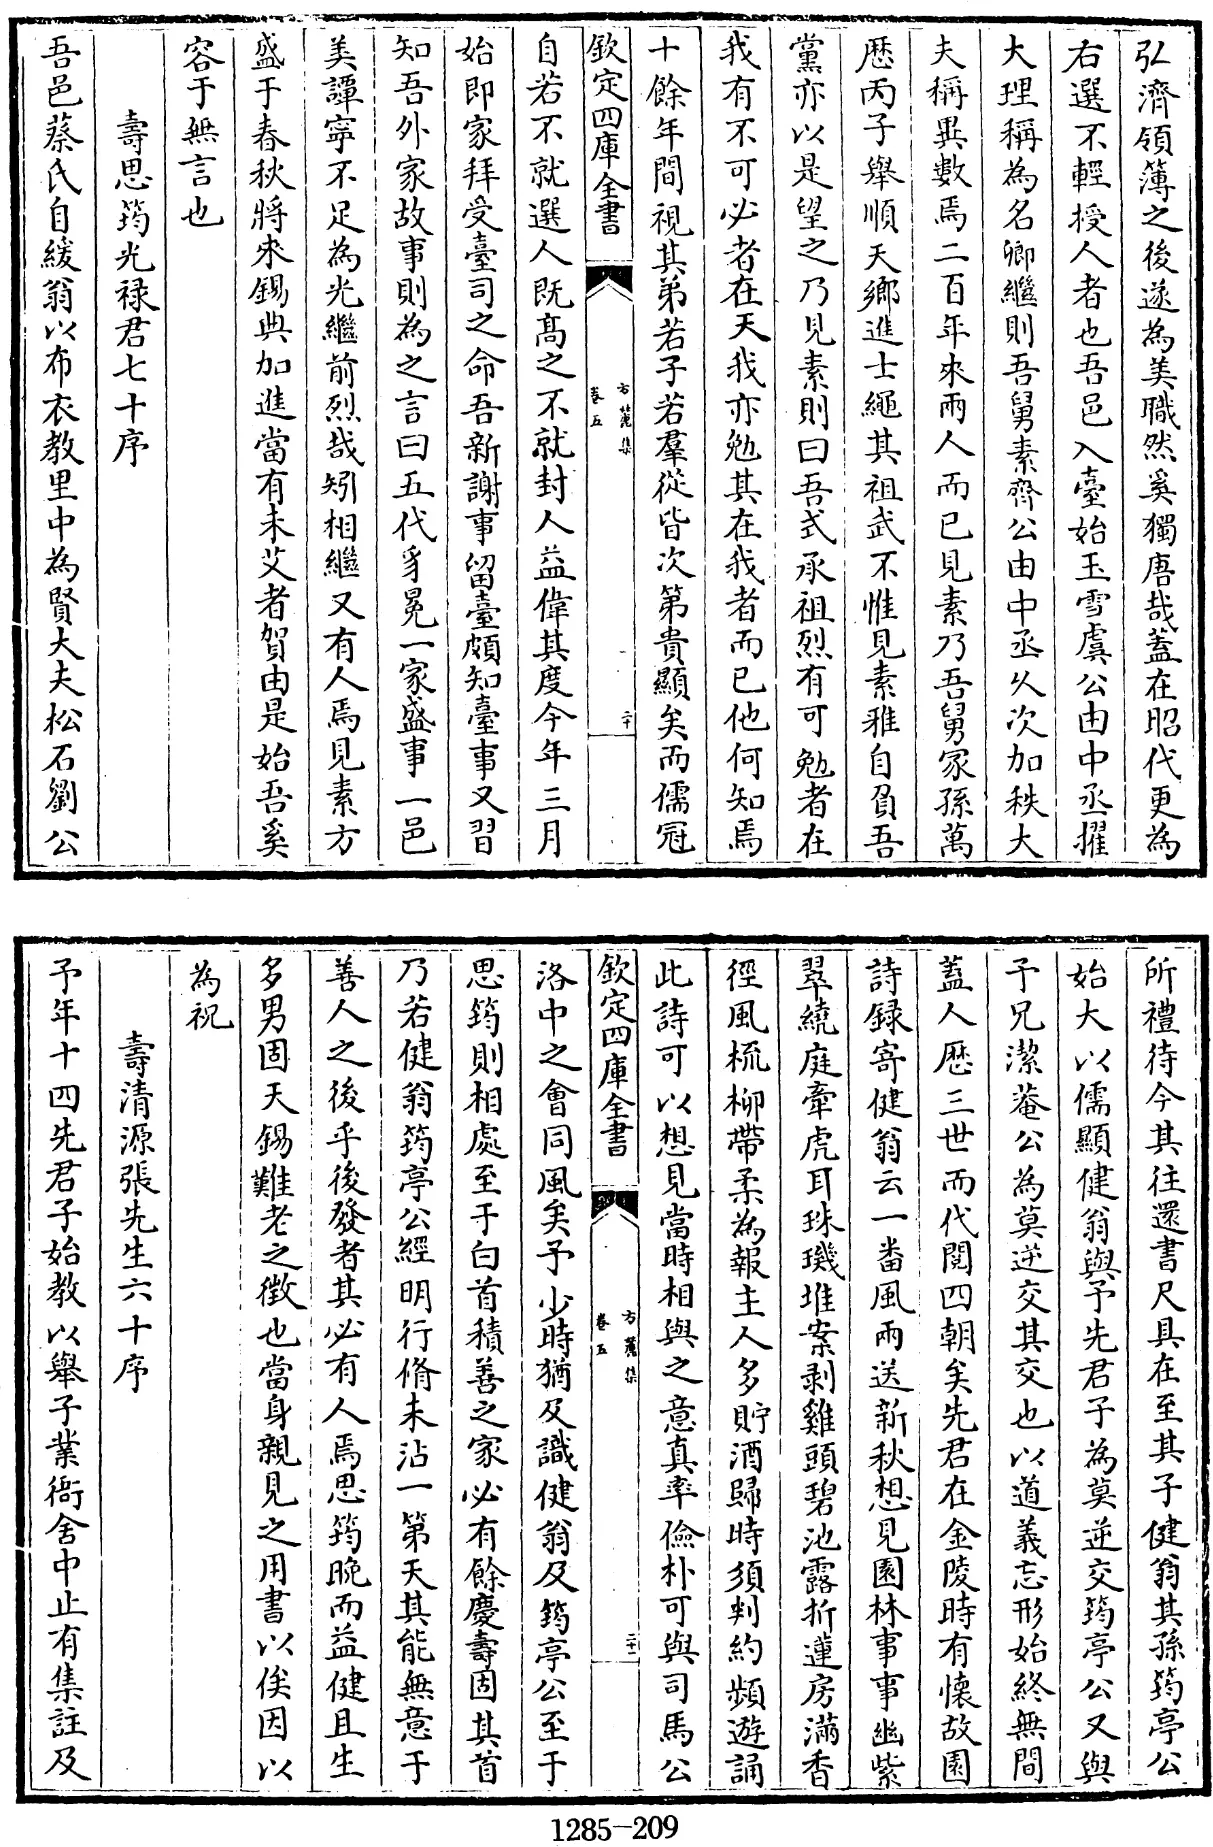 弘濟領簿之後遂為美職然奚獨唐哉蓋在昭代更為
右選不輕授人者也吾邑入臺始玉雪虞公由中丞擢
大理稱為名卿繼則吾舅素齋公由中丞以次加秩大
夫稱異數焉二百年來兩人而已見素乃吾舅冢孫萬
歷丙子舉順天鄉進士繩其祖武不惟見素雅自負吾
黨亦以是望之乃見素則曰吾式承祖烈有可勉者在
我有不可必者在天我亦勉其在我者而已他何知焉
十餘年間視其弟若子若羣從皆次第貴顯矣而儒冠
欽定四庫全書
方麓集
卷五
二十
自若不就選人既高之不就封人益偉其度今年三月
始即家拜受臺司之命吾新謝事留臺頗知臺事又習
知吾外家故事則為之言曰五代豸冕一家盛事一邑
美譚寧不足為光繼前烈哉矧相繼又有人焉見素方
盛于春秋將來錫典加進當有未艾者賀由是始吾奚
容于無言也
壽思筠光禄君七十序
吾邑蔡氏自緩翁以布衣教里中為賢大夫松石劉公
所禮待今其往還書尺具在至其子健翁其孫筠亭公
始大以儒顯健翁與予先君子為莫逆交筠亭公又與
予兄潔菴公為莫逆交其交也以道義忘形始終無間
蓋人歷三世而代閱四朝矣先君在金陵時有懷故園
詩録寄健翁云一番風雨送新秋想見園林事事幽紫
翠繞庭牽虎耳珠璣堆案剥雞頭碧池露折蓮房滿香
徑風梳柳帶柔為報主人多貯酒歸時須判約頻遊誦
此詩可以想見當時相與之意真率儉朴可與司馬公
欽定四庫全書
方麓集
卷五
二十一
洛中之會同風矣予少時猶及識健翁及筠亭公至于
思筠則相處至于白首積善之家必有餘慶壽固其首
乃若健翁筠亭公經明行脩未沾一第天其能無意于
善人之後乎後發者其必有人焉思筠晚而益健且生
多男固天錫難老之徵也當身親見之用書以俟因以
為祝
壽清源張先生六十序
予年十四先君子始教以舉子業衙舍中止有集註及
1285-209